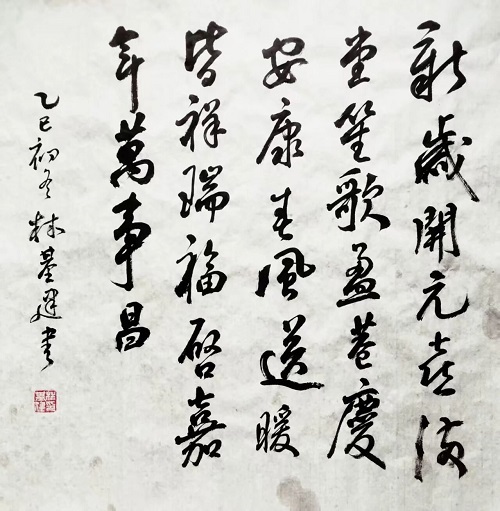 新歲開元喜滿
堂笙歌盈巷慶
安康春風送暖
皆祥瑞福啓嘉
年萬事昌
乙巳初冬林基建書